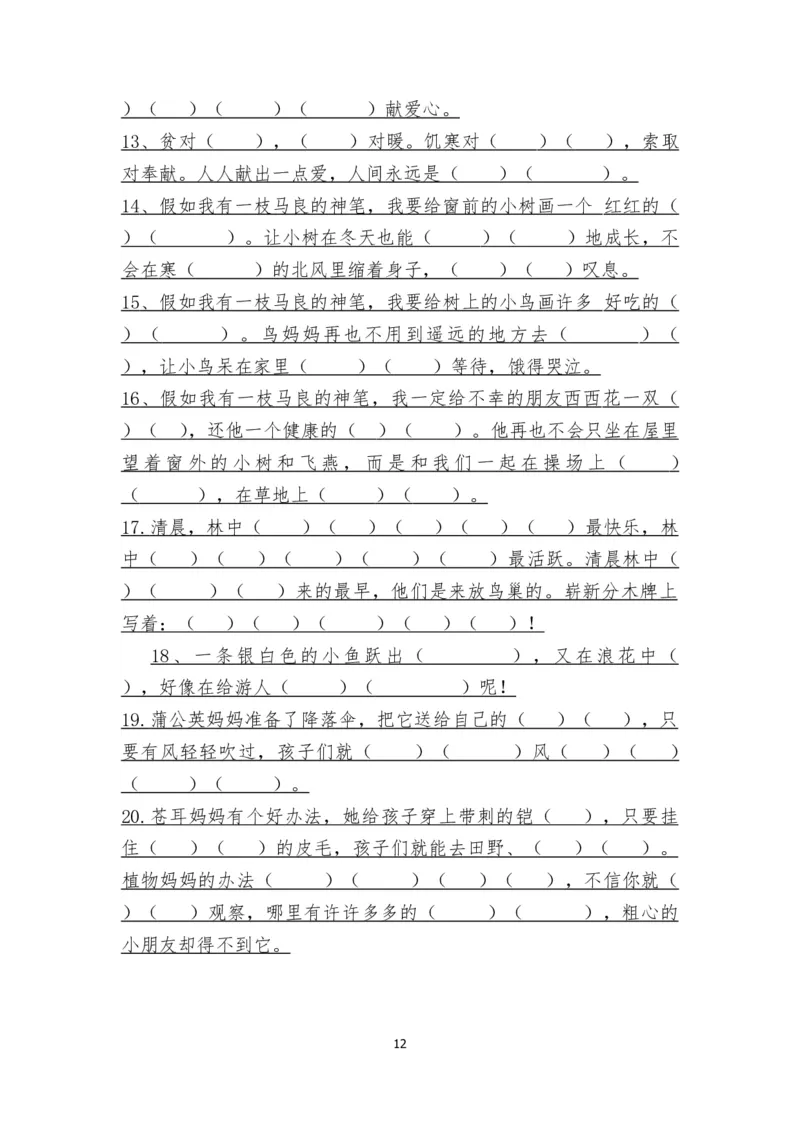 ）（　）（　　）（　　　）献爱心。
13、贫对（　　），（　　）对暖。饥寒对（　　）（　），索取
对奉献。人人献出一点爱，人间永远是（　　）（　　　）。
14、假如我有一枝马良的神笔，我要给窗前的小树画一个 红红的（
）（　　　）。让小树在冬天也能（　　）（　　）地成长，不
会在寒（　　　）的北风里缩着身子，（　　）（　）叹息。
15、假如我有一枝马良的神笔，我要给树上的小鸟画许多 好吃的（
）（　　　）。鸟妈妈再也不用到遥远的地方去（　　　）（
），让小鸟呆在家里（　　）（　　）等待，饿得哭泣。
16、假如我有一枝马良的神笔，我一定给不幸的朋友西西花一双（
）（　），还他一个健康的（　）（　　）。他再也不会只坐在屋里
望着窗外的小树和飞燕，而是和我们一起在操场上（　　）
（　　　），在草地上（　　）（　　）。
17.清晨，林中（　　）（　）（　）（　）（　）最快乐，林
中（　）（　）（　　）（　　）（　　）最活跃。清晨林中（
）（　　）（　）来的最早，他们是来放鸟巢的。崭新分木牌上
写着：（　）（　）（　　）（　）（　）！
18、一条银白色的小鱼跃出（　　　　），又在浪花中（
），好像在给游人（　　）（　　　　）呢！
19.蒲公英妈妈准备了降落伞，把它送给自己的（　）（　），只
要有风轻轻吹过，孩子们就（　　）（　　　）风（　）（　）
（　　）（　　）。
20.苍耳妈妈有个好办法，她给孩子穿上带刺的铠（　），只要挂
住（　）（　）的皮毛，孩子们就能去田野、（　）（　）。
植物妈妈的办法（　　）（　　）（　）（　），不信你就（
）（　）观察，哪里有许许多多的（　　）（　　　），粗心的
小朋友却得不到它。
12